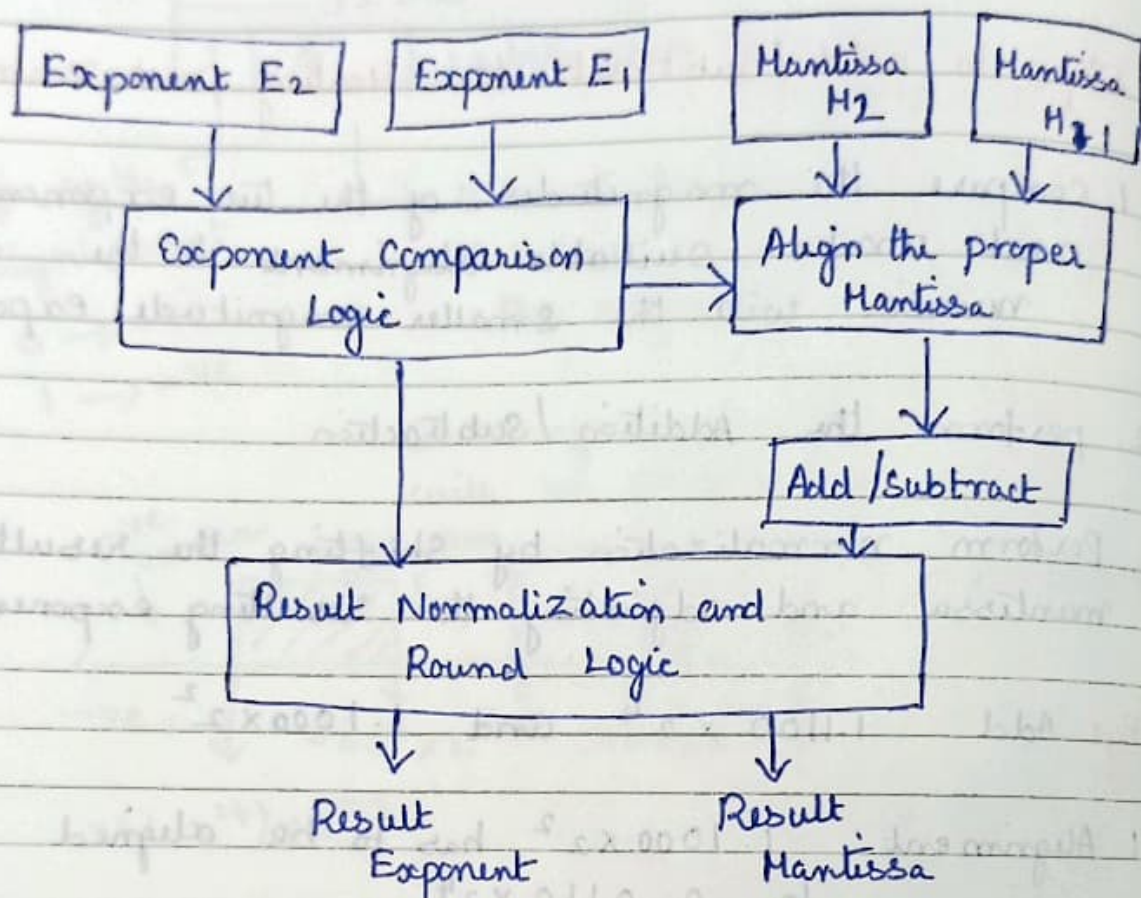 Exponent E2
Exponent E1
Mantissa
M2
Mantissa
M1
Exponent Comparison
Logic
Align the proper
Mantissa
Add/Subtract
Result Normalization and
Round Logic
Result
Exponent
Result
Mantissa